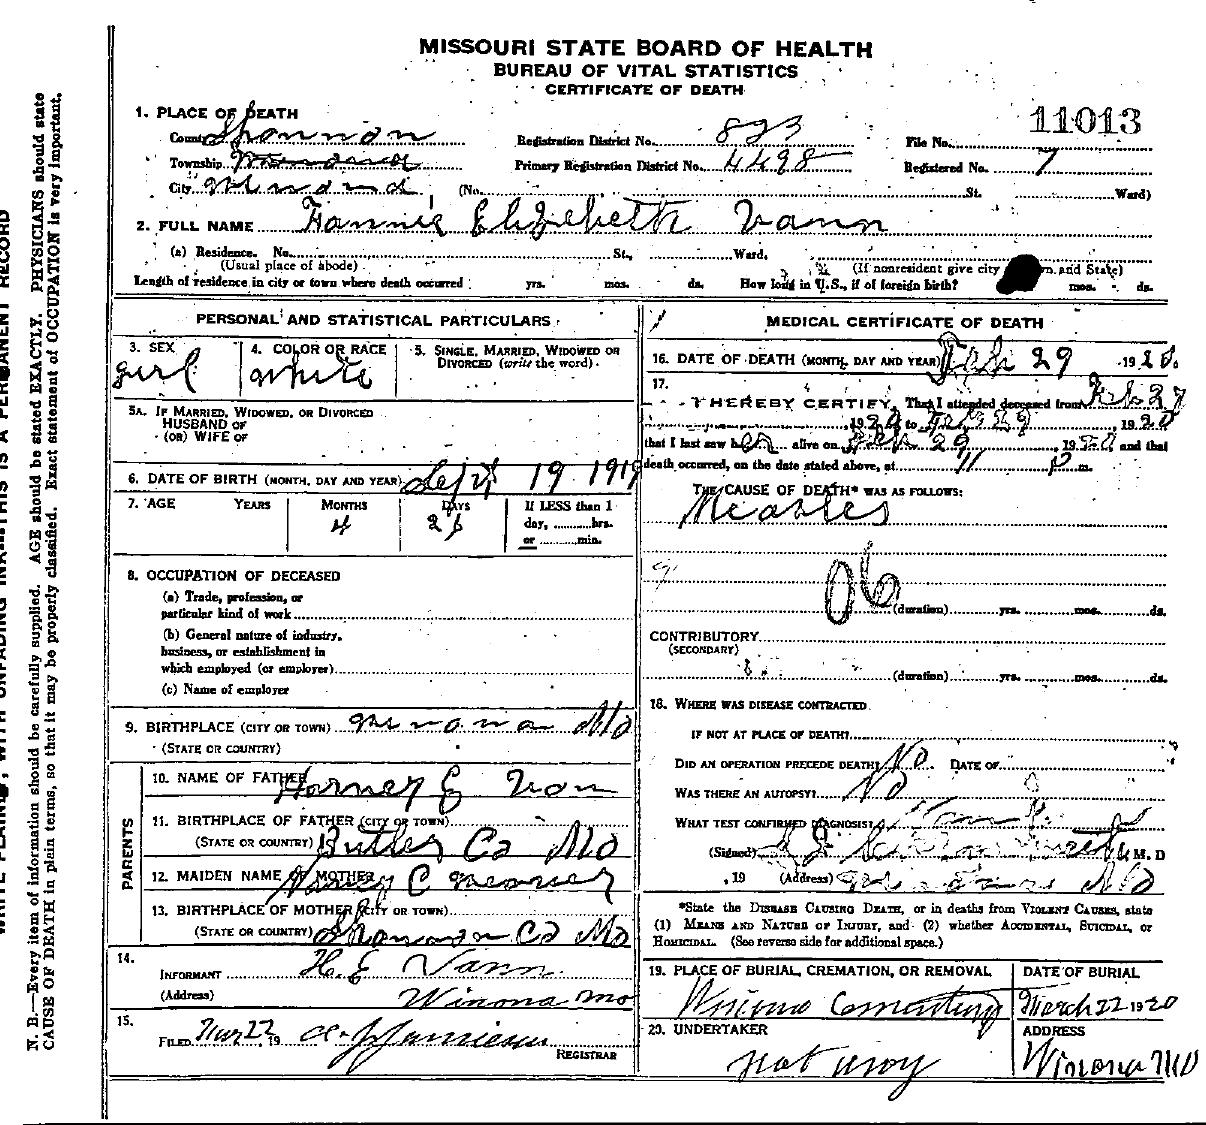 MISSOURI STATE BOARD OF HEALTH
BUREAU OF VITAL STATISTICS
CERTIFICATE OF DEATH
1. PLACE OF DEATH
County Shannon Registration District No. 823 File No. 11013
Township Primary Registration District No. 4498 Registered No. 7
City Winona (No. St. Ward)
2. FULL NAME Fannie Elizebeth Vann
(a) Residence. No. St., Ward,
(Usual place of abode) (If nonresident give city and State)
Length of residence in city or town where death occurred yrs. mos. ds. How long in U.S., if of foreign birth? mos. ds.
PERSONAL AND STATISTICAL PARTICULARS
3. SEX
girl
4. COLOR OR RACE
White
5. SINGLE, MARRIED, WIDOWED OR
DIVORCED (write the word)
5A. IF MARRIED, WIDOWED, OR DIVORCED
HUSBAND OF
(OR) WIFE OF
6. DATE OF BIRTH (MONTH, DAY AND YEAR) Sept 19 1919
7. AGE YEARS MONTHS DAYS If LESS than 1
4 26 day, hrs.
or min.
8. OCCUPATION OF DECEASED
(a) Trade, profession, or
particular kind of work
(b) General nature of industry,
business, or establishment in
which employed (or employer)
(c) Name of employer
9. BIRTHPLACE (CITY OR TOWN) Winona Mo
(STATE OR COUNTRY)
PARENTS
10. NAME OF FATHER Harney E Van
11. BIRTHPLACE OF FATHER (CITY OR TOWN)
(STATE OR COUNTRY) Butler Co Mo
12. MAIDEN NAME OF MOTHER Nancy C
13. BIRTHPLACE OF MOTHER (CITY OR TOWN)
(STATE OR COUNTRY) Shannon Co Mo
14.
INFORMANT H. E Vann
(Address) Winona Mo
15.
FILED Mar 22 19
REGISTRAR
MEDICAL CERTIFICATE OF DEATH
16. DATE OF DEATH (MONTH, DAY AND YEAR) Feb 29 1920
17.
I HEREBY CERTIFY, That I attended deceased from Feb 27
1920 to Feb 29 1920
that I last saw her alive on Feb 29, 1920 and that
death occurred, on the date stated above, at 11 P m.
THE CAUSE OF DEATH* WAS AS FOLLOWS:
Measles
06
(duration) yrs. mos. ds.
CONTRIBUTORY
(SECONDARY)
(duration) yrs. mos. ds.
18. WHERE WAS DISEASE CONTRACTED
IF NOT AT PLACE OF DEATH?
DID AN OPERATION PRECEDE DEATH? No DATE OF
WAS THERE AN AUTOPSY? No
WHAT TEST CONFIRMED DIAGNOSIS?
(Signed) M. D
, 19 (Address) Mo
*State the DISEASE CAUSING DEATH, or in deaths from VIOLENT CAUSES, state
(1) MEANS AND NATURE OF INJURY, and (2) whether ACCIDENTAL, SUICIDAL, or
HOMICIDAL. (See reverse side for additional space.)
19. PLACE OF BURIAL, CREMATION, OR REMOVAL
Winona Cementery
DATE OF BURIAL
March 22 1920
20. UNDERTAKER
not any
ADDRESS
Winona MO
N. B.—Every item of information should be carefully supplied. AGE should be stated EXACTLY. PHYSICIANS should state
CAUSE OF DEATH in plain terms, so that it may be properly classified. Exact statement of OCCUPATION is very important.